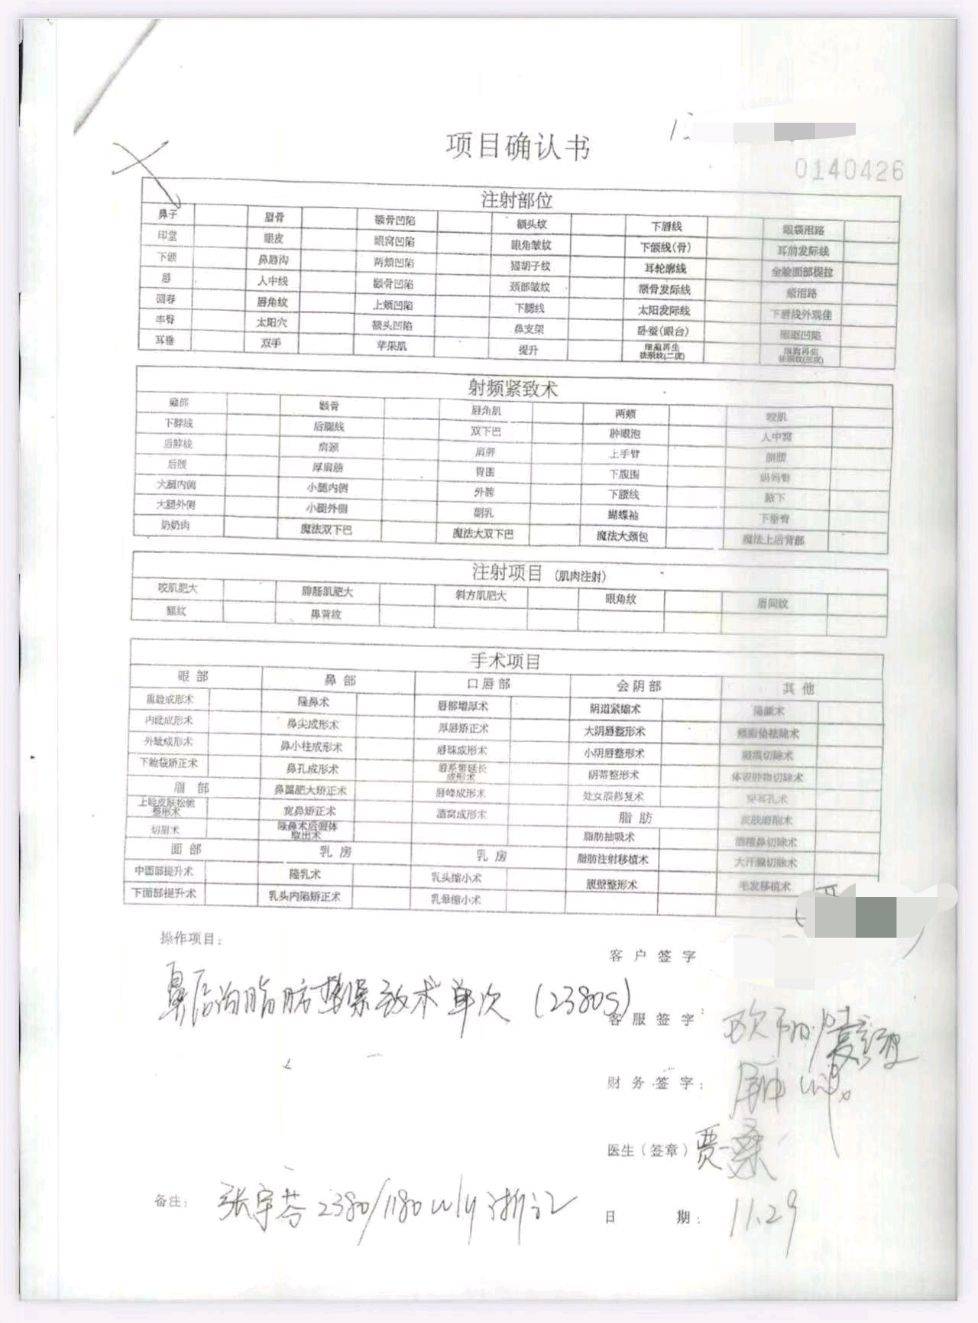 项目确认书
0140426
注射部位
鼻子 眉骨 颧骨凹陷 额头纹 下唇线 眼袋泪路
印堂 眼皮 眼窝凹陷 眼角皱纹 下颌线(骨) 耳前发际线
下颌 鼻唇沟 两颊凹陷 耳轮廓线 全脸面部提拉
唇 人中线 颧骨凹陷 颈部皱纹 颞骨发际线
唇角纹 上颊凹陷 下腰线 太阳发际线
丰臀 太阳穴 额头凹陷 鼻支架 卧蚕(眼台) 眼眶凹陷
耳垂 双手 苹果肌 提升
射频紧致术
颧骨 唇角肌 两颊 咬肌
下脖线 后腿线 双下巴 肿眼泡
后脖线 肩颈 肩胛 上手臂
后腰 厚肩筋 胃围 下腹围
大腿内侧 小腿内侧 外胯 下腰线 腋下
大腿外侧 小腿外侧 副乳 蝴蝶袖 下垂臀
奶奶肉 魔法双下巴 魔法大双下巴 魔法大颈包 魔法上后背部
注射项目 (肌肉注射)
咬肌肥大 腓肠肌肥大 斜方肌肥大 眼角纹 眉间纹
额纹 鼻背纹
手术项目
眼 部 鼻 部 口 唇 部 会 阴 部 其 他
重睑成形术 隆鼻术 唇部增厚术 阴道紧缩术 隆颏术
内眦成形术 鼻尖成形术 厚唇矫正术 大阴唇整形术 颊脂垫祛除术
外眦成形术 鼻小柱成形术 唇珠成形术 小阴唇整形术
下睑袋矫正术 鼻孔成形术 唇系带延长成形术 阴蒂整形术 体表肿物切除术
眉 部 鼻翼肥大矫正术 唇峰成形术 处女膜修复术 穿耳孔术
上睑皮肤松弛整形术 宽鼻矫正术 酒窝成形术 脂 肪 皮肤磨削术
切眉术 隆鼻术后假体取出术 脂肪抽吸术 酒糟鼻切除术
面 部 乳 房 乳 房 脂肪注射移植术 大汗腺切除术
中面部提升术 隆乳术 乳头缩小术 腹壁整形术 毛发移植术
下面部提升术 乳头内陷矫正术 乳晕缩小术
操作项目:
客 户 签 字
脂肪 术单次(2380
客 服 签 字:
财 务 签 字:
医生(签章) 贾
备注: 张宇芬 2380/1180
日 期: 11.29